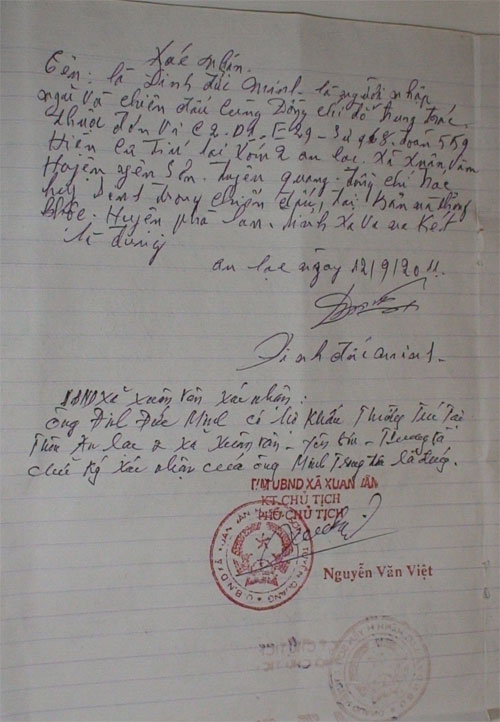 Xác nhận.
Tên: là Đinh đức Minh là người nhập
ngũ và chiến đấu cùng Đồng chí đỗ trung trác
thuộc đơn vị C2.D1.E29-Sư 968.đoàn 559
Hiện cư trú tại xóm 2 an lạc. Xã Xuân vân
Huyện yên Sơn. tuyên quang. đồng chí trác
hy sinh trong chiến đấu, tại Bản nà
Huyện pha lan. tỉnh Xa Va na Kẹt
là đúng
an lạc ngày 12/9/2011.
Đinh đức minh.
UBND xã xuân vân xác nhận:
ông Đinh Đức Minh có hộ khẩu Thường trú tại
Thôn An lạc 2 xã Xuân vân - yên Sơn -
chữ ký xác nhận của ông Minh là đúng.
T/M UBND XÃ XUÂN VÂN
KT.CHỦ TỊCH
PHÓ CHỦ TỊCH
Nguyễn Văn Việt